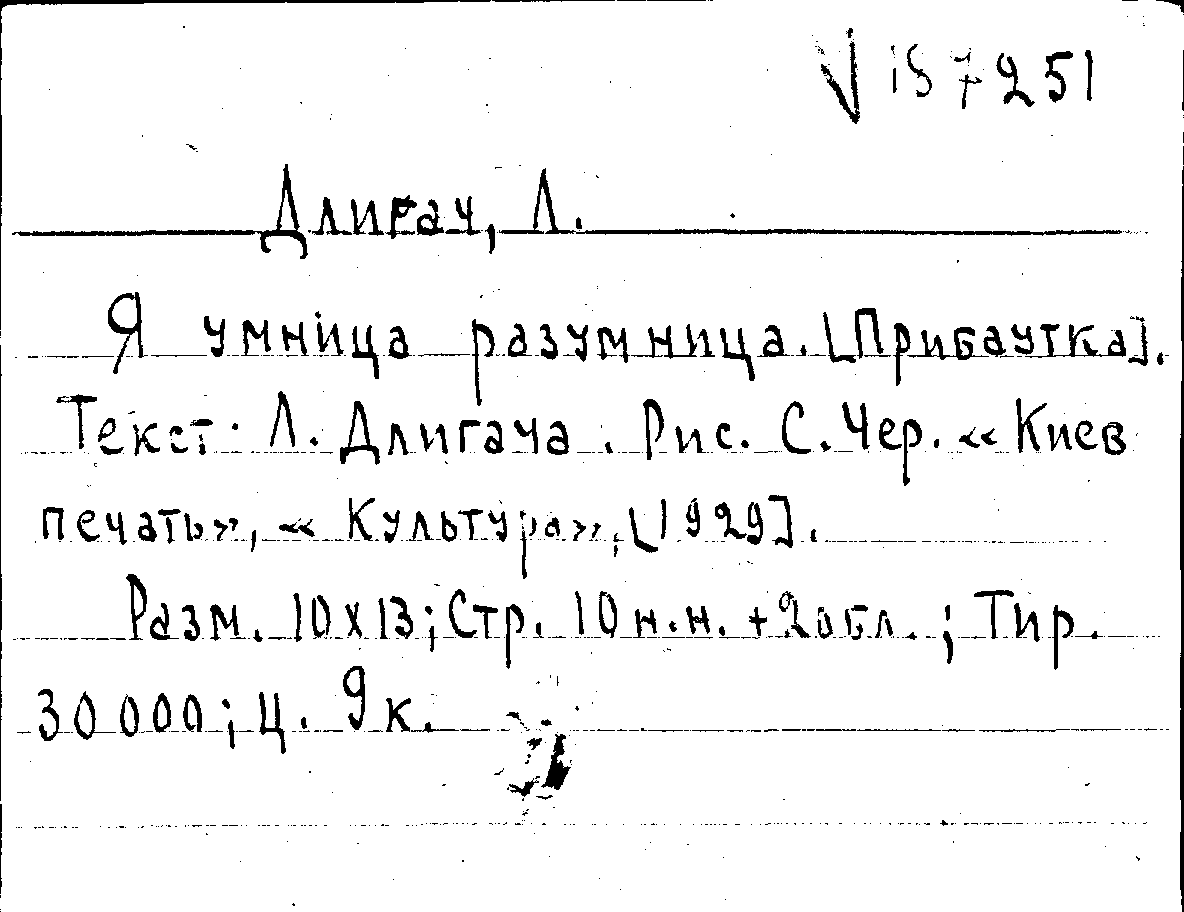 V 157251
Длигач, Л.
Я умница разумница. [Прибаутка].
Текст Л. Длигача. Рис. С. Чер. «Киев
печать», «Культура», [1929].
Разм. 10х13; Стр. 10 н.н. + 2 обл.; Тир.
30 000; ц. 9 к.